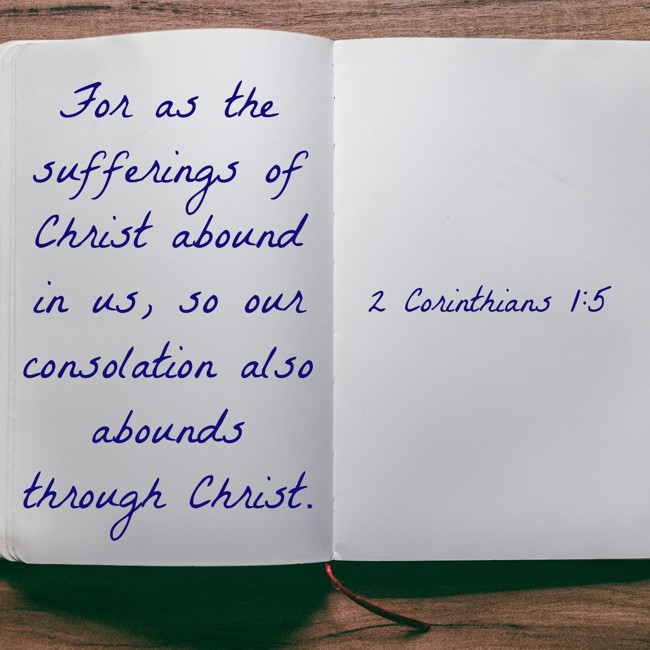 For as the
sufferings of
Christ abound
in us, so our
consolation also
abounds
through Christ.
2 Corinthians 1:5